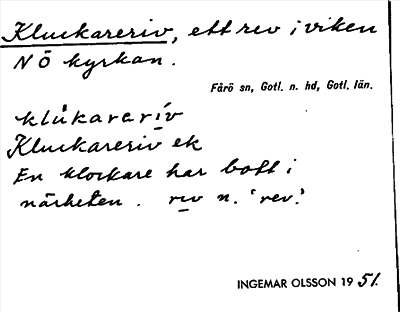 Kluckareriv, ett rev i viken
N Ö kyrkan.
Fårö sn, Gotl. n. hd, Gotl. län.
klùkararív
Kluckareriv ek
En klockare har bott i
närheten. riv n. 'rev.'
INGEMAR OLSSON 1951.